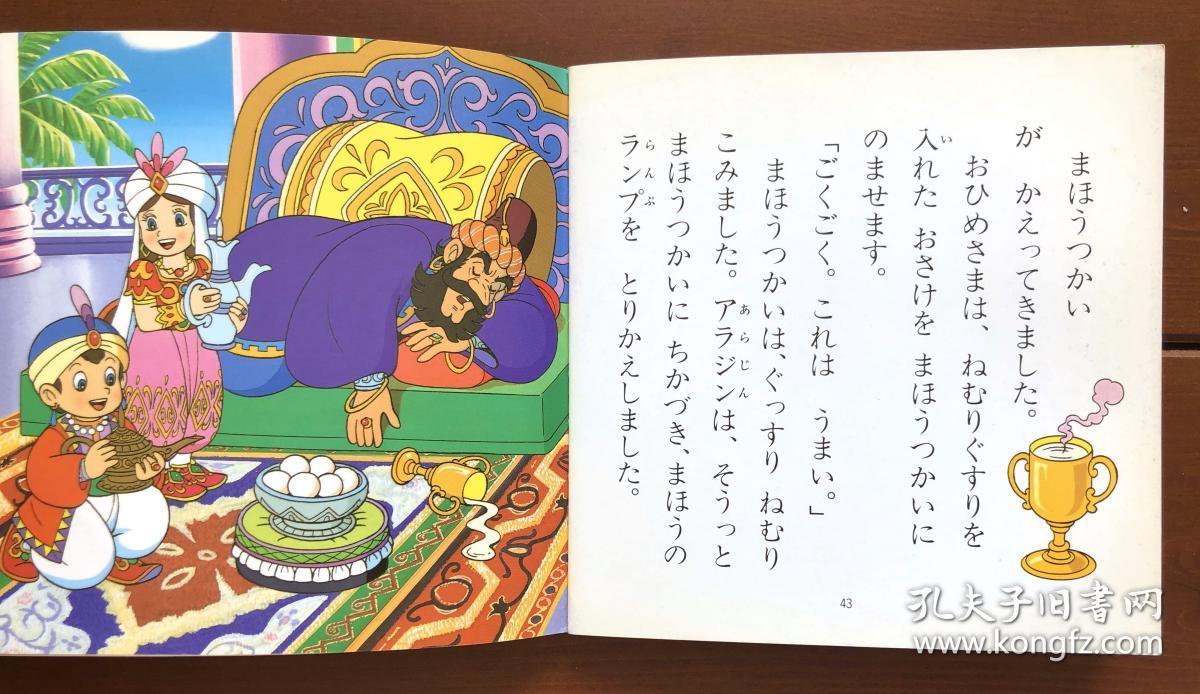 まほうつかい
が　かえってきました。
おひめさまは、ねむりぐすりを
入れた　おさけを　まほうつかいに
のませます。
「ごくごく。これは　うまい。」
まほうつかいは、ぐっすり　ねむり
こみました。アラジンは、そうっと
まほうつかいに　ちかづき、まほうの
ランプを　とりかえしました。
い
あらじん
らんぷ
43
孔夫子旧書网
www.kongfz.com